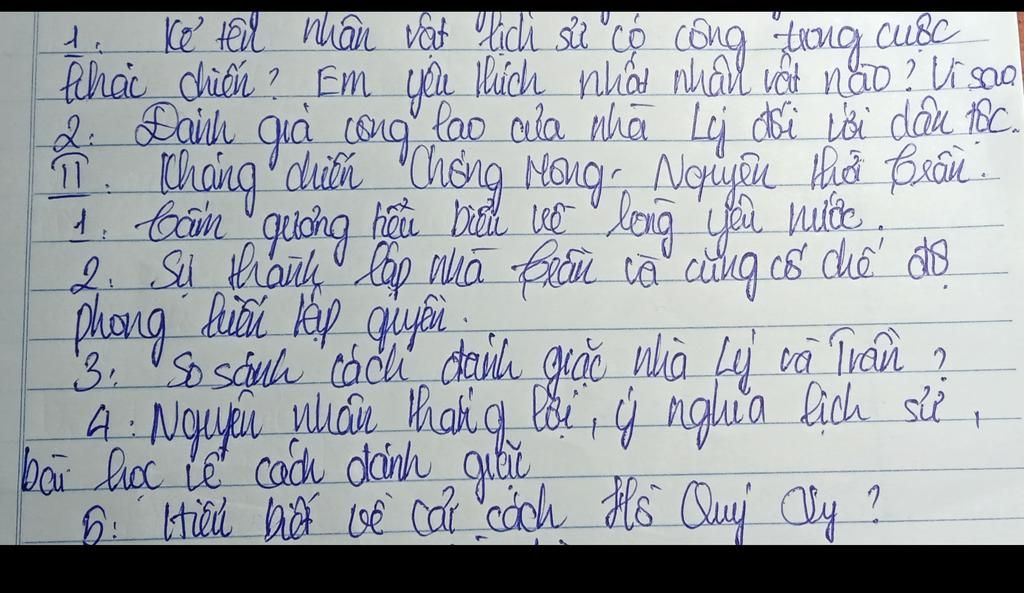 1. Kể tên nhân vật lịch sử có công trong cuộc
khác chiến? Em yêu thích nhất nhân vật nào? Vì sao
2. Đánh giá công lao của nhà Lý đối với dân tộc.
II. Kháng chiến Chống Mông - Nguyên thời trần.
1. tấm gương tiêu biểu về lòng yêu nước.
2. Sự thành lập nhà trần và củng cố chế độ
phong kiến tập quyền.
3: So sánh cách đánh giặc nhà Lý và Trần?
4: Nguyên nhân thắng lợi, ý nghĩa lịch sử,
bài học về cách đánh giặc
5: Hiểu biết về cải cách Hồ Quý Ly?